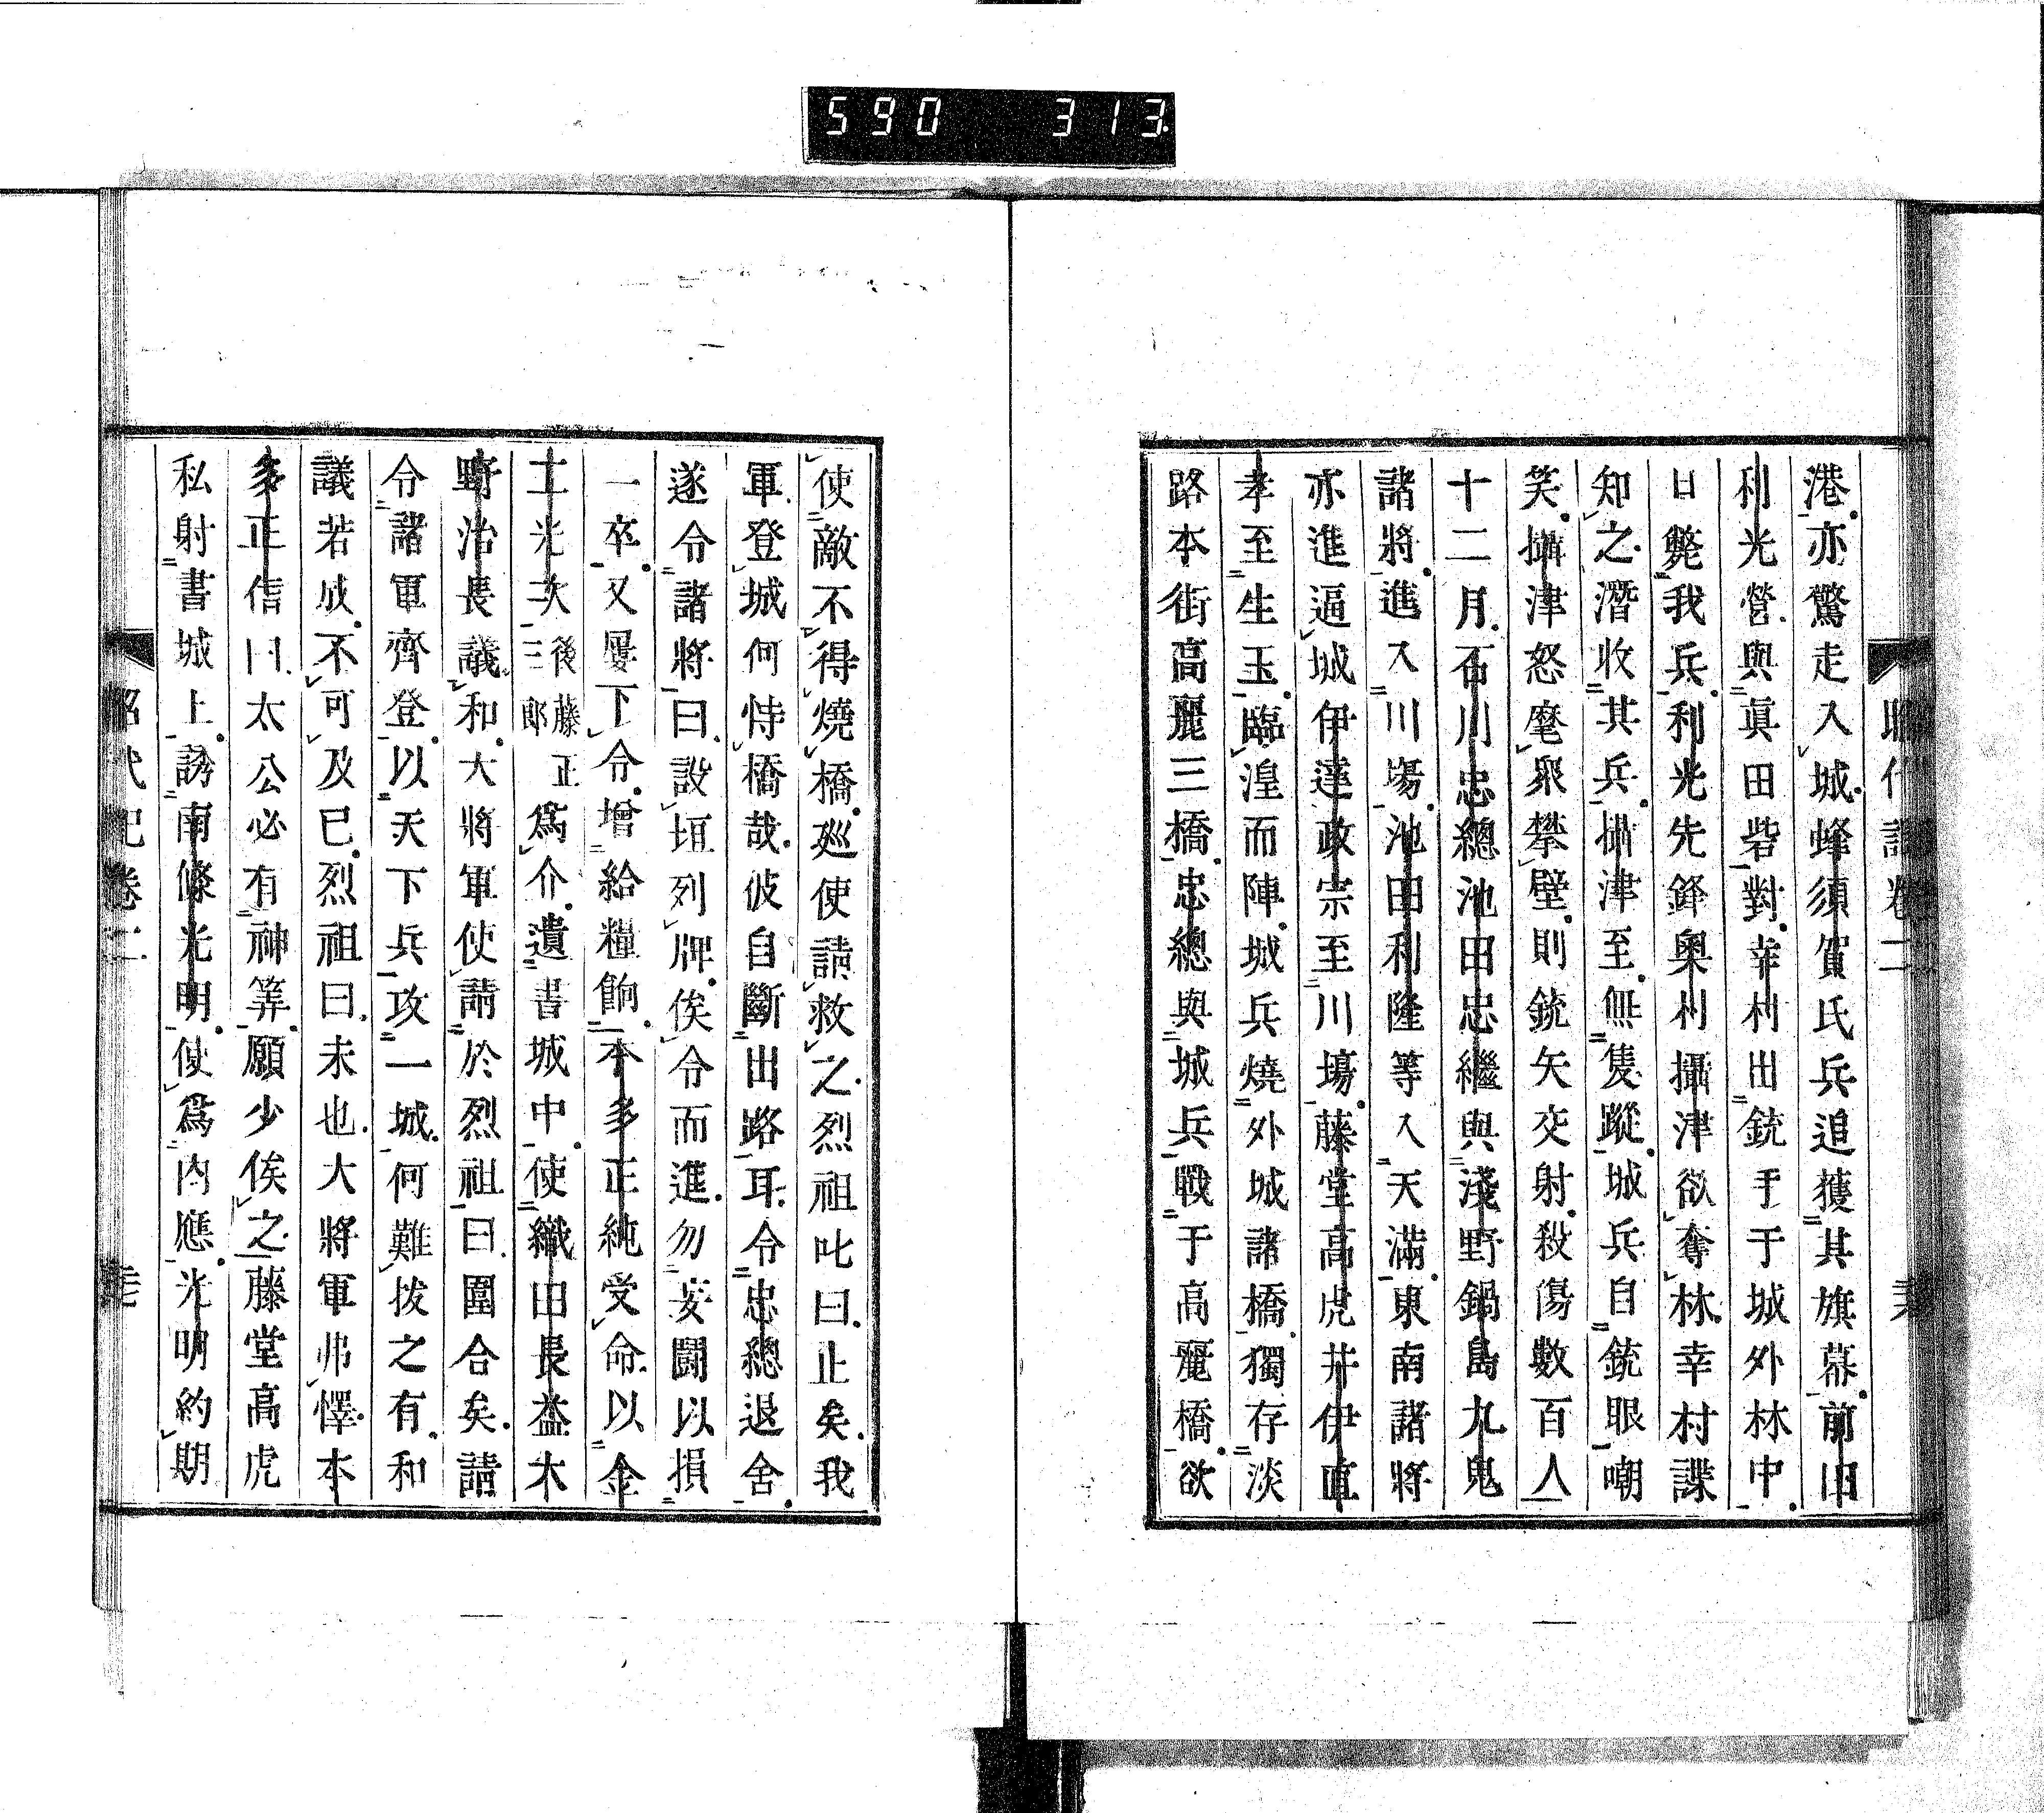 590 313
昭代記卷二
港亦驚走入城蜂須賀氏兵追獲其旗幕前田
利光營與眞田砦對幸村出銃手于城外林中
日斃我兵利光先鋒奧村攝津欲奪林幸村諜
知之潛收其兵攝津至無隻蹤城兵自銃眼嘲
笑攝津怒麾衆攀壁則銃矢交射殺傷數百人
十二月石川忠總池田忠繼與淺野鍋島九鬼
諸將進入川場池田利隆等入天滿東南諸將
亦進逼城伊達政宗至川場藤堂高虎井伊直
孝至生玉臨湟而陣城兵燒外城諸橋獨存淡
路本街高麗三橋忠總與城兵戰于高麗橋欲
使敵不得燒橋巡使請救之烈祖叱曰止矣我
軍登城何恃橋哉彼自斷出路耳令忠總退舍
遂令諸將曰設垣列牌俟令而進勿妄鬪以損
一卒又屢下令增給糧餉本多正純受命以金
工光次後藤正三郎爲介遺書城中使織田長益大
野治長議和大將軍使請於烈祖曰圍合矣請
令諸軍齊登以天下兵攻一城何難拔之有和
議若成不可及已烈祖曰未也大將軍弗懌本
多正信曰太公必有神筭願少俟之藤堂高虎
私射書城上誘南條光明使爲內應光明約期
昭代記卷二